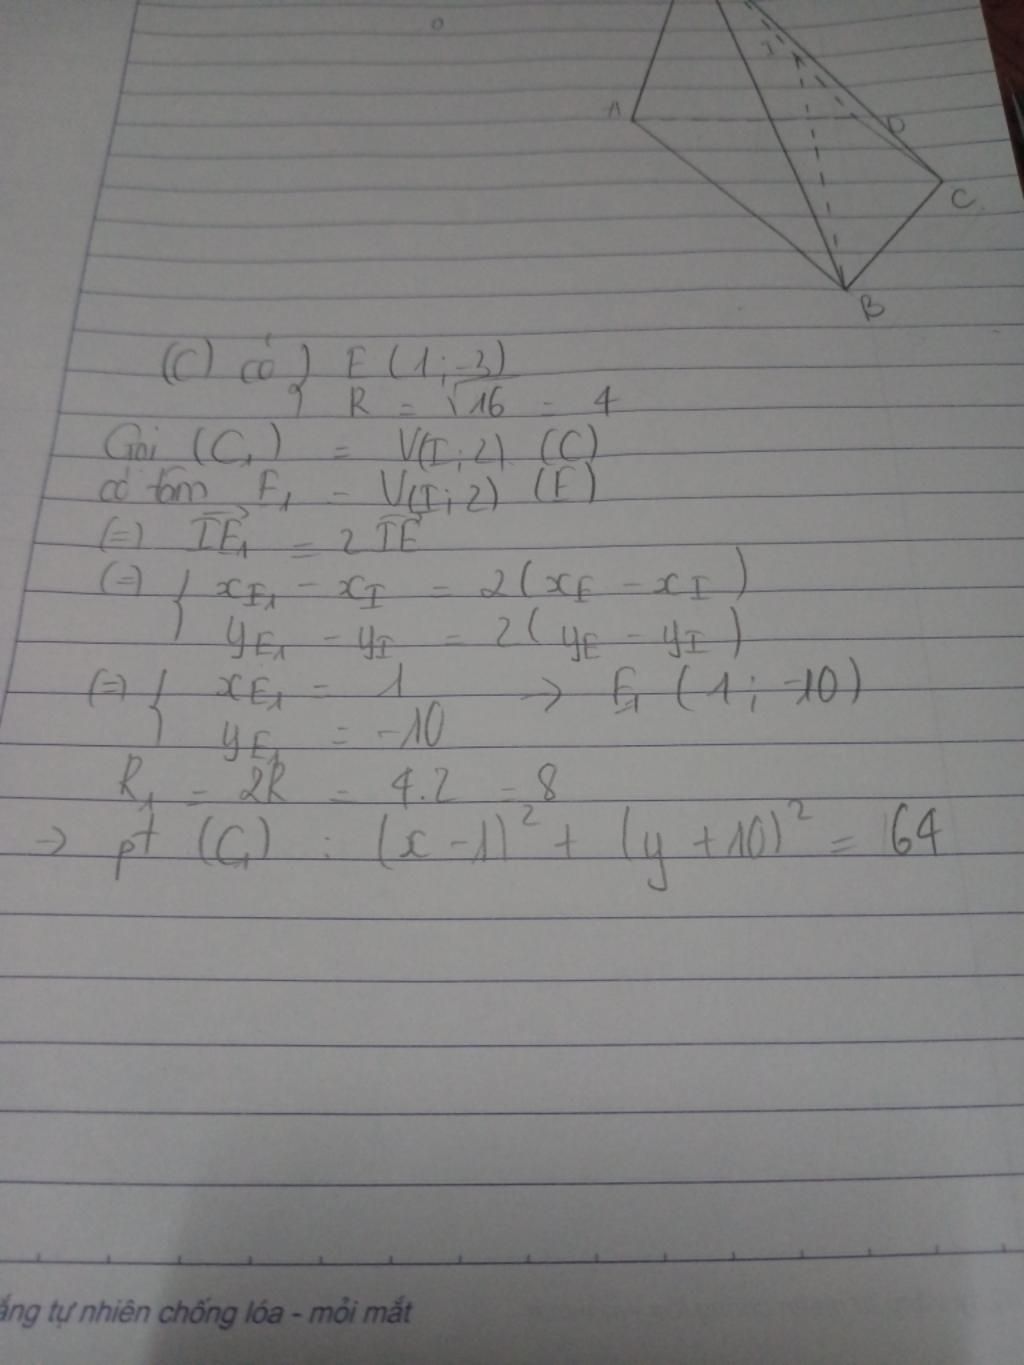 A
D
C
B
(C) có { E (1; -3)
R = √16 = 4
Gọi (C₁) = V(I; 2) (C)
có tâm E₁ = V(I; 2) (E)
(=) IE₁ = 2 IE
(=) { x_E₁ - x_I = 2(x_E - x_I)
y_E₁ - y_I = 2(y_E - y_I)
(=) { x_E₁ = 1 → E₁ (1; -10)
y_E₁ = -10
R₁ = 2R = 4.2 = 8
→ pt (C₁) : (x - 1)² + (y + 10)² = 64
tự nhiên chống lóa - mỏi mắt